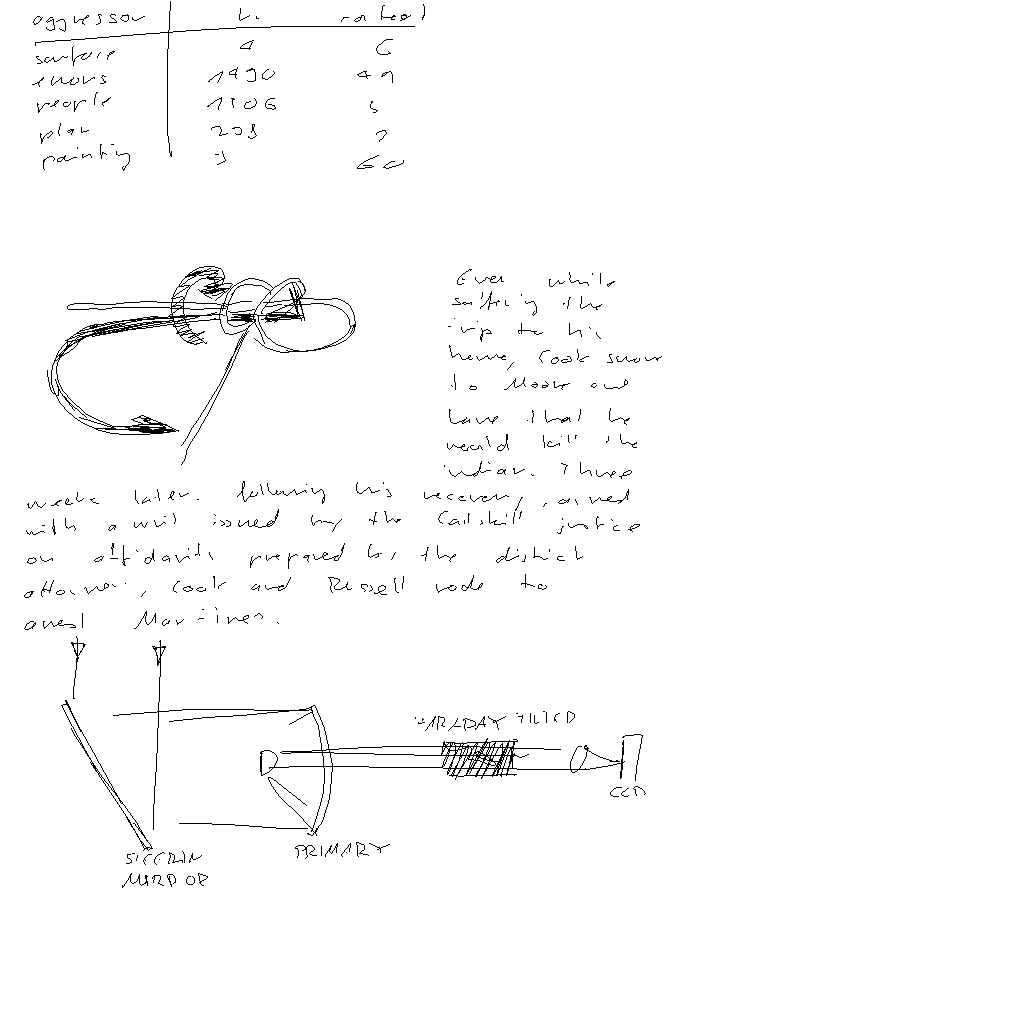 aggressor
surface 4 6
errors 1490 49
people 1106 5
plan
painting 3 60
Even while
suffering the
trip to his
home, Cook swore
to Moore and
that he
would kill the
indian. Three
weeks later. following his recovery, armed
with a writ issued by the Catskill justice
on affidavits prepared by the district
attorney, Cook and Russell rode to
arrest
FARADAY FILTER
CCD
STEERING PRIMARY
MIRROR